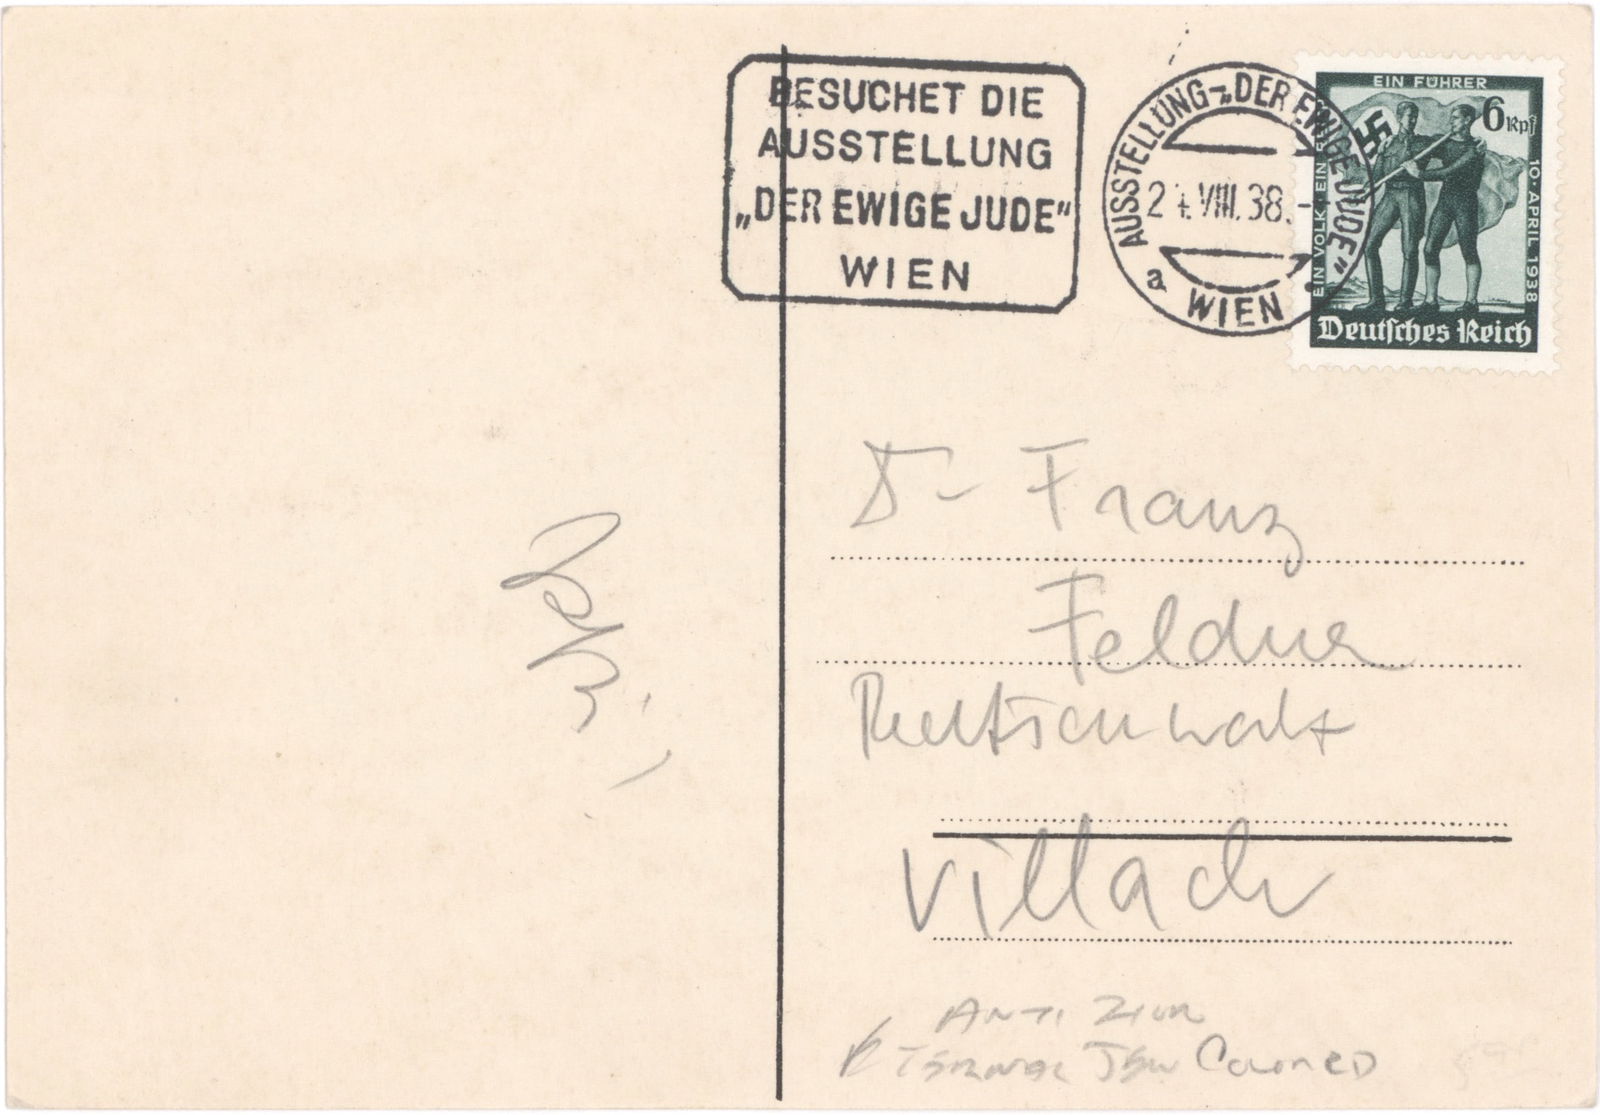 BESUCHET DIE
AUSSTELLUNG
„DER EWIGE JUDE“
WIEN
AUSSTELLUNG-„DER EWIGE JUDE“
24.VIII.38.-
a WIEN
EIN VOLK EIN FÜHRER
10·APRIL 1938
6 Rpf
Deutsches Reich
Dr Franz
Feldner
Rechtsanwalt
Villach
ANTI
COUNCED